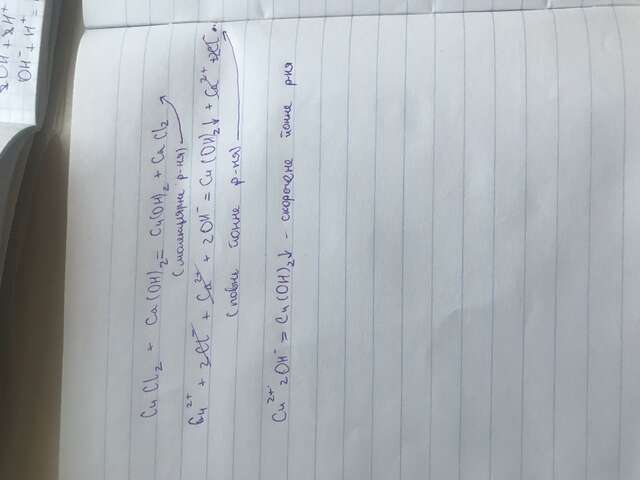 2OH⁻ + 2H⁺
OH⁻ + H⁺ =
CuCl₂ + Ca(OH)₂ = Cu(OH)₂ + CaCl₂
(молекулярне р-ня)
Cu²⁺ + 2Cl⁻ + Ca²⁺ + 2OH⁻ = Cu(OH)₂↓ + Ca²⁺ + 2Cl⁻
(повне йонне р-ня)
Cu²⁺ 2OH⁻ = Cu(OH)₂↓ - скорочене йонне р-ня